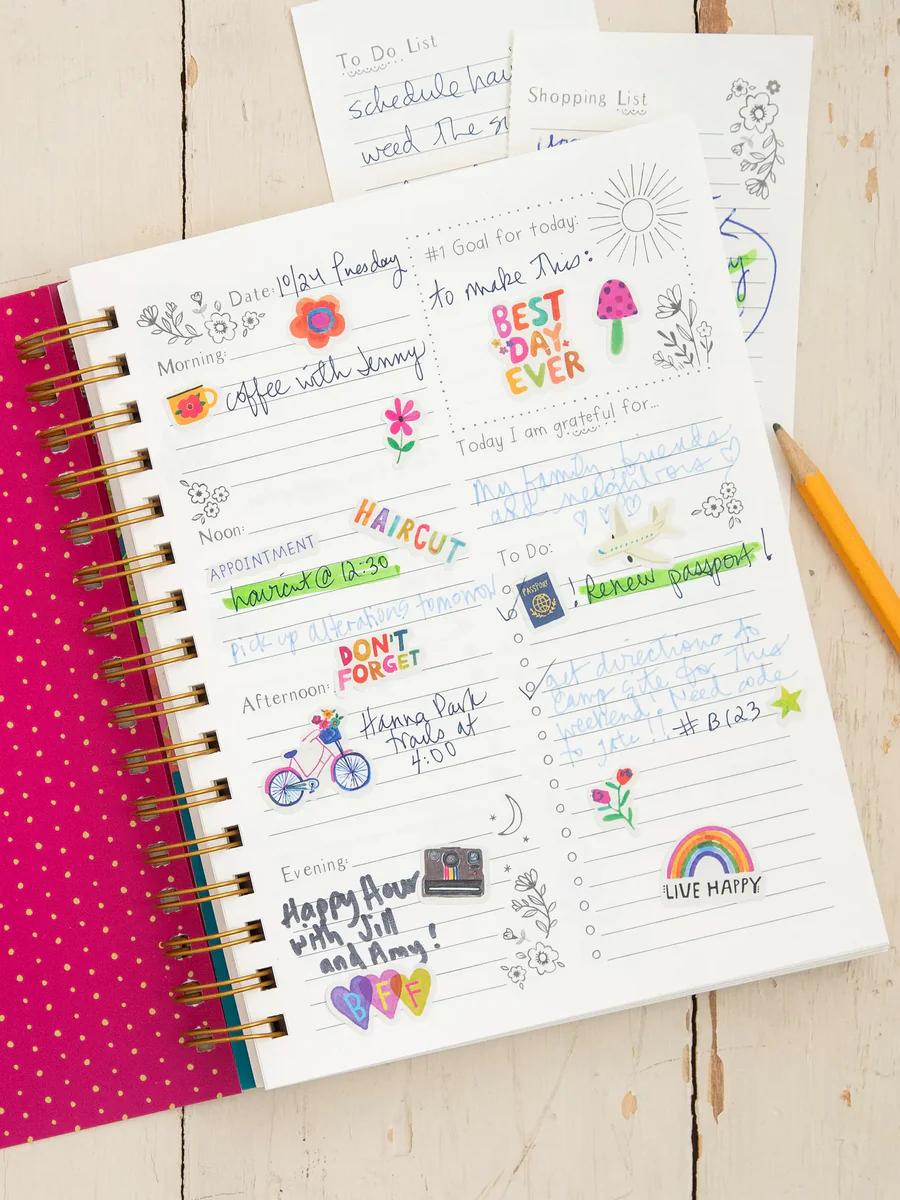 To Do List
schedule hai
weed the
Shopping List
Date: 10/24 Tuesday
Morning:
coffee with Jenny
Noon:
APPOINTMENT
HAIRCUT
haircut @ 12:30
pick up alterations tomorrow
DON'T
FORGET
Afternoon:
Hanna Park
trails at
4:00
Evening:
Happy Hour
with Jill
and Amy!
BFF
#1 Goal for today:
to make this:
BEST
DAY
EVER
Today I am grateful for...
My family, friends
and neighbors
To Do:
PASSPORT
! Renew passport!
get directions to
camp site for this
weekend! Need code
to gate!! #B123
LIVE HAPPY